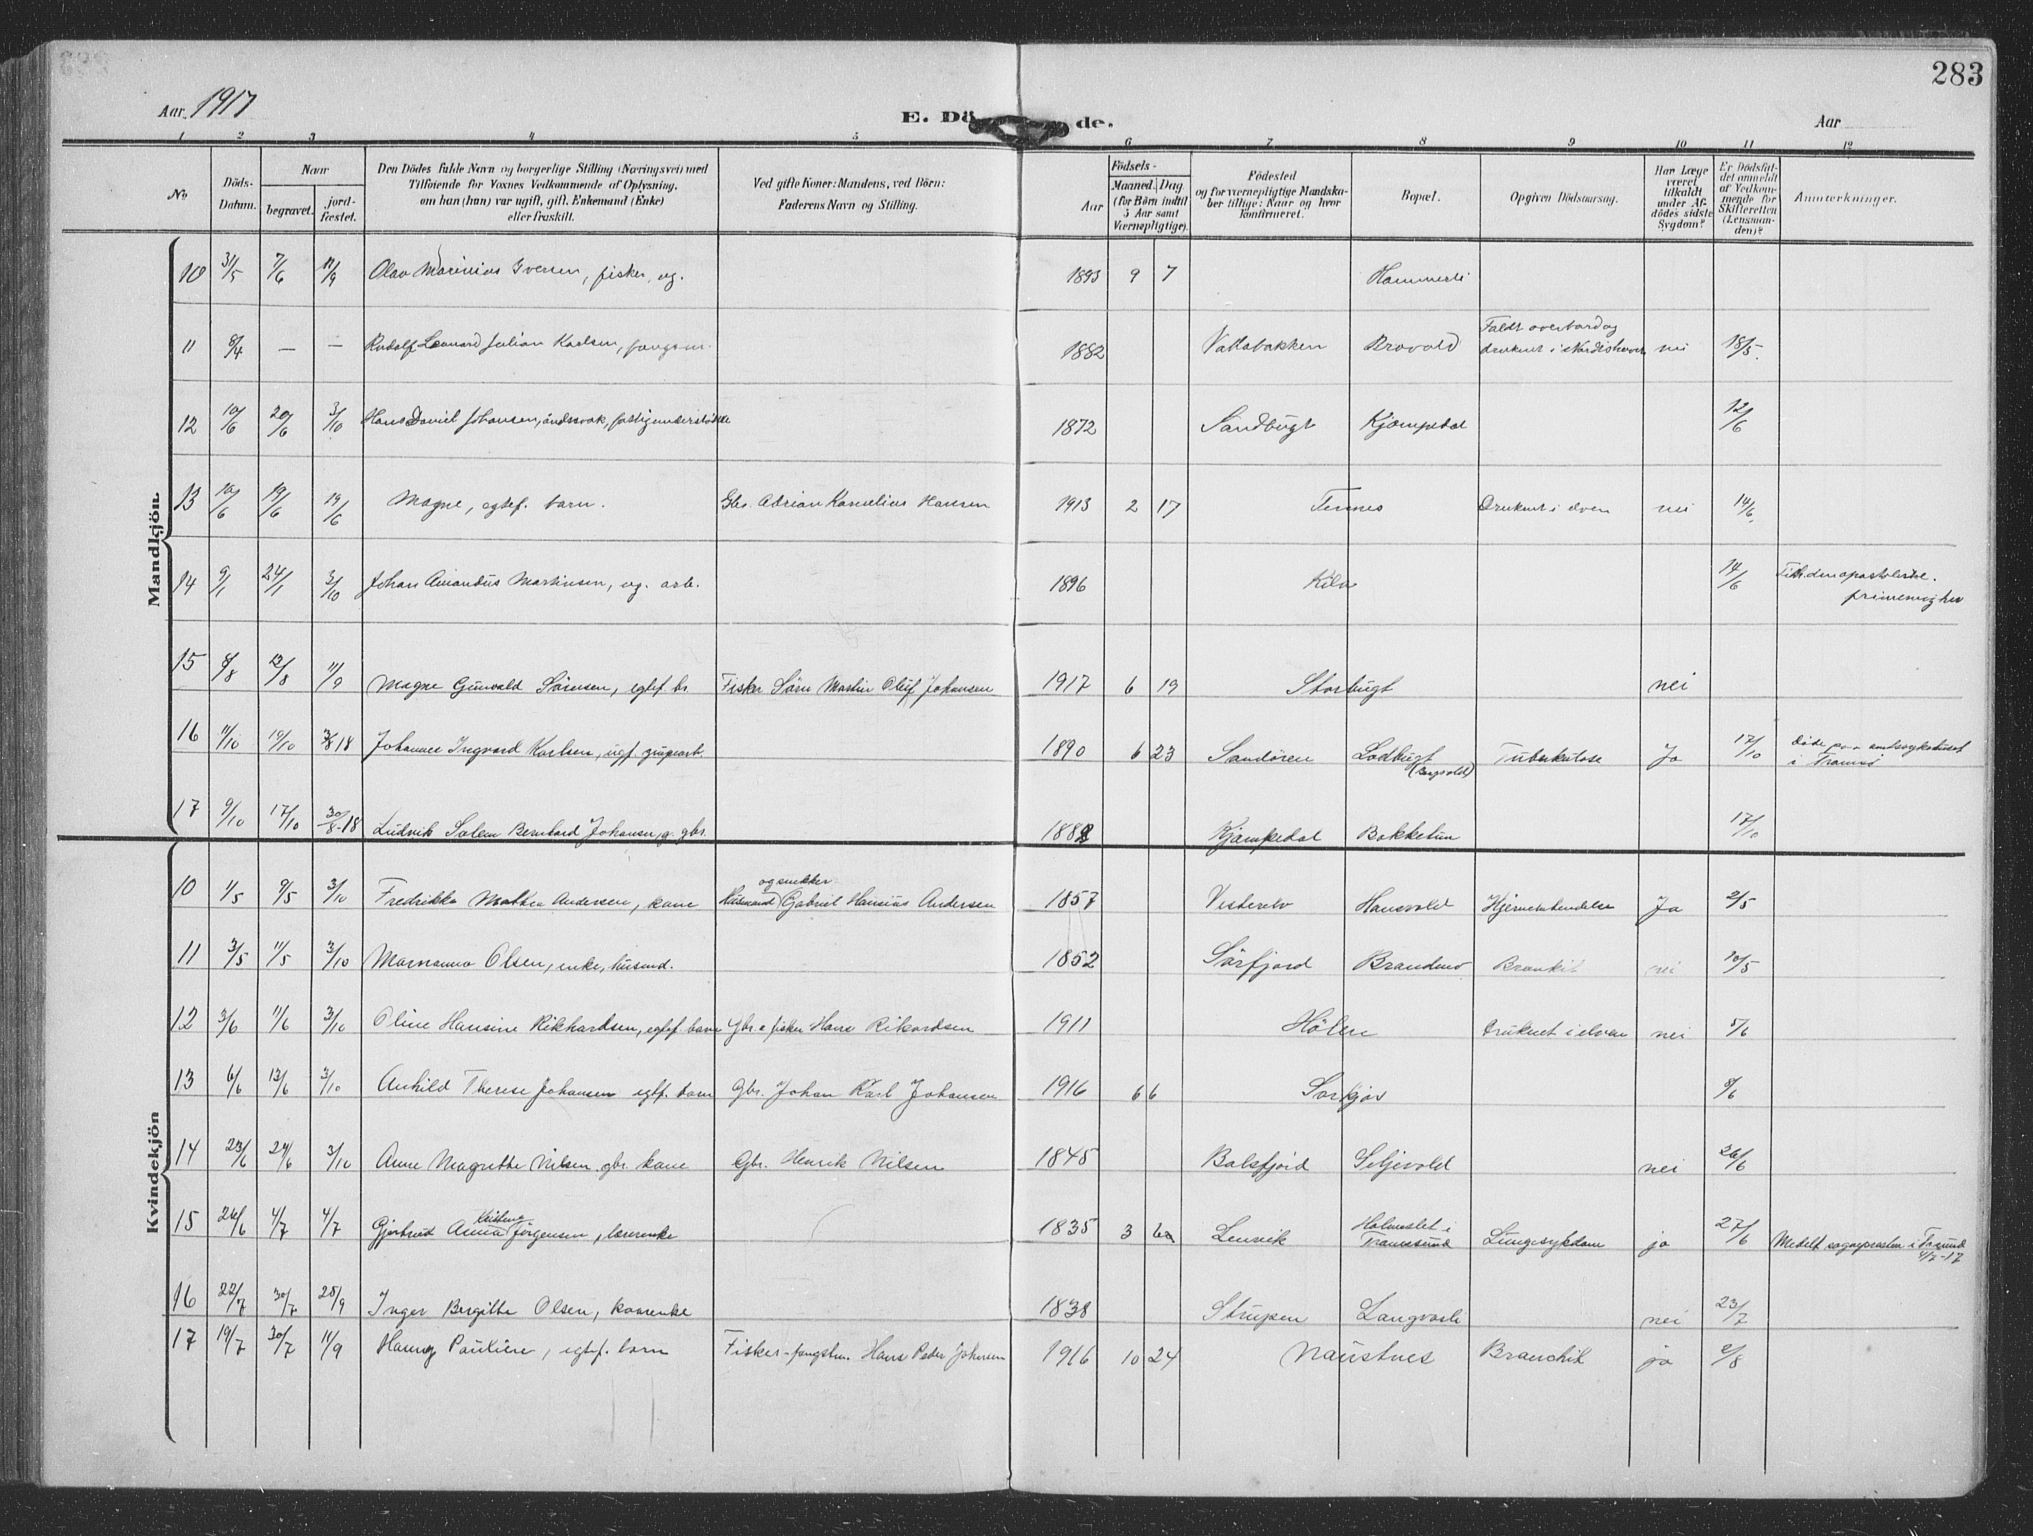 283
Aar 1917
E. Dö de.
Aar
1 2 3 4 5 6 7 8 9 10 11 12
No
Döds-Datum.
Naar
begravet.
jord-fæstet.
Den Dödes fulde Navn og borgerlige Stilling (Næringsvei) med
Tilföiende for Voxnes Vedkommende af Oplysning,
om han (hun) var ugift, gift, Enkemand (Enke)
eller fraskilt.
Ved gifte Koner: Mandens, ved Börn:
Faderens Navn og Stilling.
Födsels-
Aar
Maaned. Dag
(for Börn indtil
5 Aar samt
Værnepligtige).
Födested
og for værnepligtige Mandska-
ber tillige: Naar og hvor
konfirmeret.
Bopæl.
Opgiven Dödsaarsag.
Har Læge
været
tilkaldt
under Af-
dödes sidste
Sygdom?
Er Dödsfal-
det anmeldt
af Vedkom-
mende for
Skifteretten
(Lensman-
den)?
Anmærkninger.
Mandkjön
10 31/5 7/6 11/9 Olav Marinius Iversen, fisker, ug. 1893 9 7 Hammerli
11 8/4 — — Rudolf Leonard Julian Karlsen, fangsm. 1882 Vollabakken Brovold Faldt overbord og
druknet i Nordishavet nei 18/5.
12 10/6 20/6 3/10 Hans Daniel Johansen, åndssvak, fattigunderstøttet 1872 Sandbugt Kjempedal 12/6
13 10/6 19/6 19/6 Magne, egtef. barn. Gbr. Adrian Kornelius Hansen 1913 2 17 Tennes Druknet i elven nei 14/6.
14 9/1 24/1 3/10 Johan Amandus Martinsen, ug. arb. 1896 Kilv 14/6
15 8/8 13/8 11/9 Magne Gunvald Sörensen, egtef. br Fisker Sören Martin Oluf Johansen 1917 6 19 Storbugt nei
16 11/10 19/10 3/8 18 Johannes Ingvard Karlsen, ugf. grupearb. 1890 6 23 Sandören Lodbugt Tuberkulose Ja 17/10 Döde paa amtssykehuset
i Tromsö
17 9/10 17/10 30/8-18 Ludvik Salem Bernhard Johansen, g. gbr. 1882 Kjempedal Bakketun 17/10
Kvindekjön
10 1/5 9/5 3/10 Fredrikke Mathea Andersen, kone Husmand og snekker Gabriel Hansius Andersen 1857 Vesterelv Hansvold Hjernebetendelse Ja 2/5
11 3/5 11/5 3/10 Marianna Olsen, enke, husmd. 1852 Sörfjord Brandmo Bronkit nei 10/5
12 3/6 11/6 3/10 Oline Hansine Rikhardsen, egtef. barn Gbr. & fisker Hans Rikardsen 1911 Hölen Druknet i elven nei 5/6
13 6/6 13/6 3/10 Anhild Therese Johansen egtf. barn Gbr. Johan Karl Johansen 1916 6 6 Sorkjos 8/6
14 23/6 29/6 3/10 Anne Magrethe Nilsen gbr. kone Gbr. Henrik Nilsen 1845 Balsfjord Seljevold nei 26/6
15 26/6 4/7 4/7 Gjertrud Anna Kristine Jörgensen, lærerenke 1835 3 Lenvik Holmeslet i
Tromsesund Lungesykdom ja 27/6 Medelt sognepresten i Tr.sund
4/7-17
16 22/7 30/7 25/9 Inger Bergitte Olsen, kaarenke 1838 Strupen Langvasli nei 23/7
17 19/7 30/7 11/9 Hanny Pauline, egtf. barn Fisker-fangstm. Hans Peder Johnsen 1916 10 24 Naustnes Bronchit ja 2/8